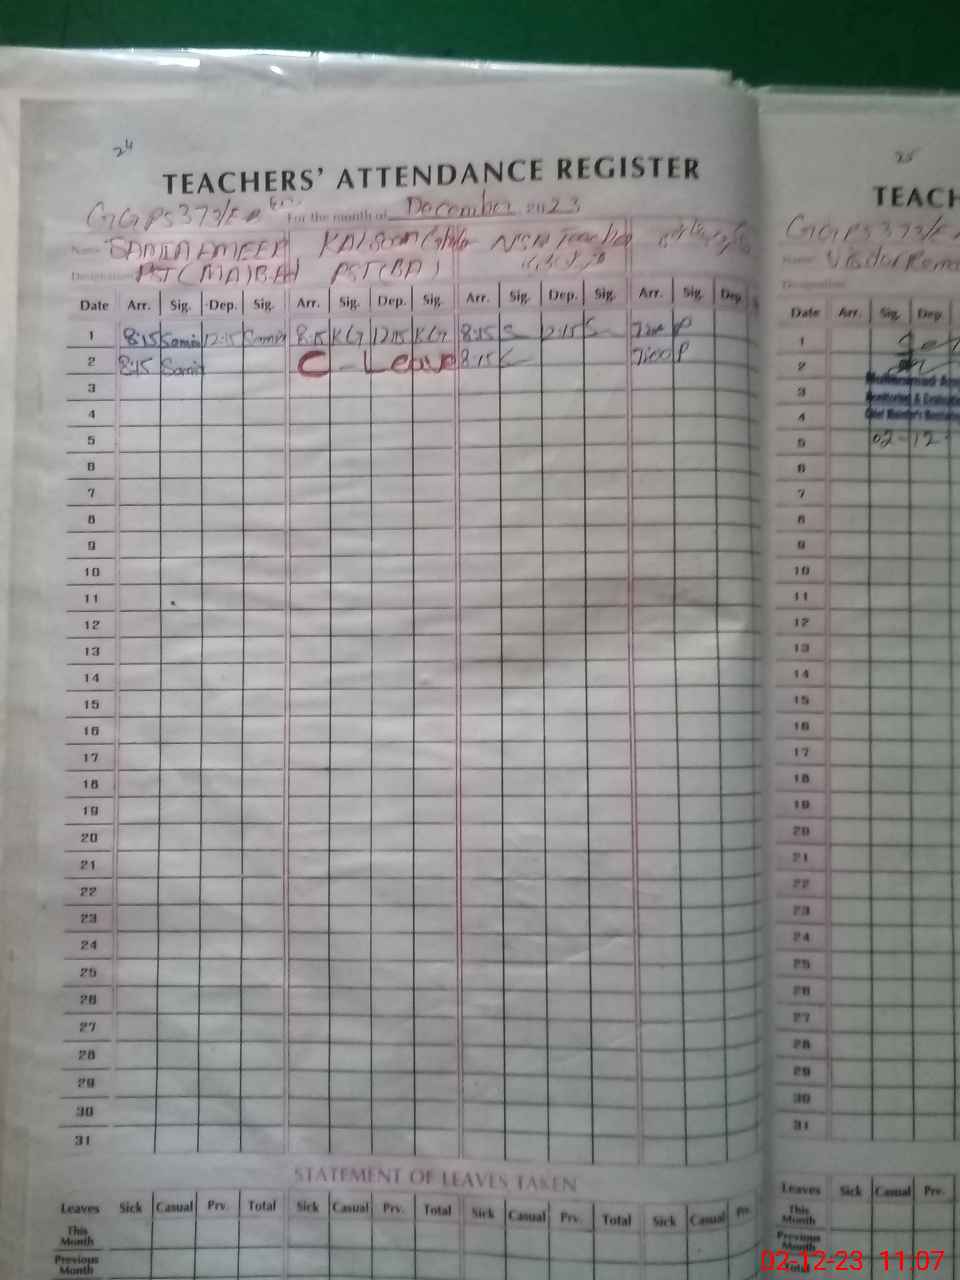 24
TEACHERS' ATTENDANCE REGISTER
GGPS 373/EB For the month of December 2023
Name SAMIA AMEER KALSOOM NSB Teacher
Designation PST (MA)(B.Ed) PST (BA)
Date Arr. Sig. Dep. Sig. Arr. Sig. Dep. Sig. Arr. Sig. Dep. Sig. Arr. Sig. Dep
1 8:15 Samia 12:15 Samia 8:15 KG 12:15 KG 8:15 S 12:15 S P
2 8:15 Samia C - Leave 8:15 S P
3
4
5
6
7
8
9
10
11
12
13
14
15
16
17
18
19
20
21
22
23
24
25
26
27
28
29
30
31
STATEMENT OF LEAVES TAKEN
Leaves Sick Casual Prv. Total Sick Casual Prv. Total Sick Casual Prv. Total Sick Casual Prv.
This Month
Previous Month
25
TEACH
GGPS 373/E
Name Visitor Rema
Designation
Date Arr. Sig. Dep
1
2
3 Muhammad
4 Monitoring & Evaluation
Chief Minister's Monitoring
5 02-12-
6
7
8
9
10
11
12
13
14
15
16
17
18
19
20
21
22
23
24
25
26
27
28
29
30
31
Leaves Sick Casual Prv.
This Month
Previous Month
Total
02-12-23 11:07